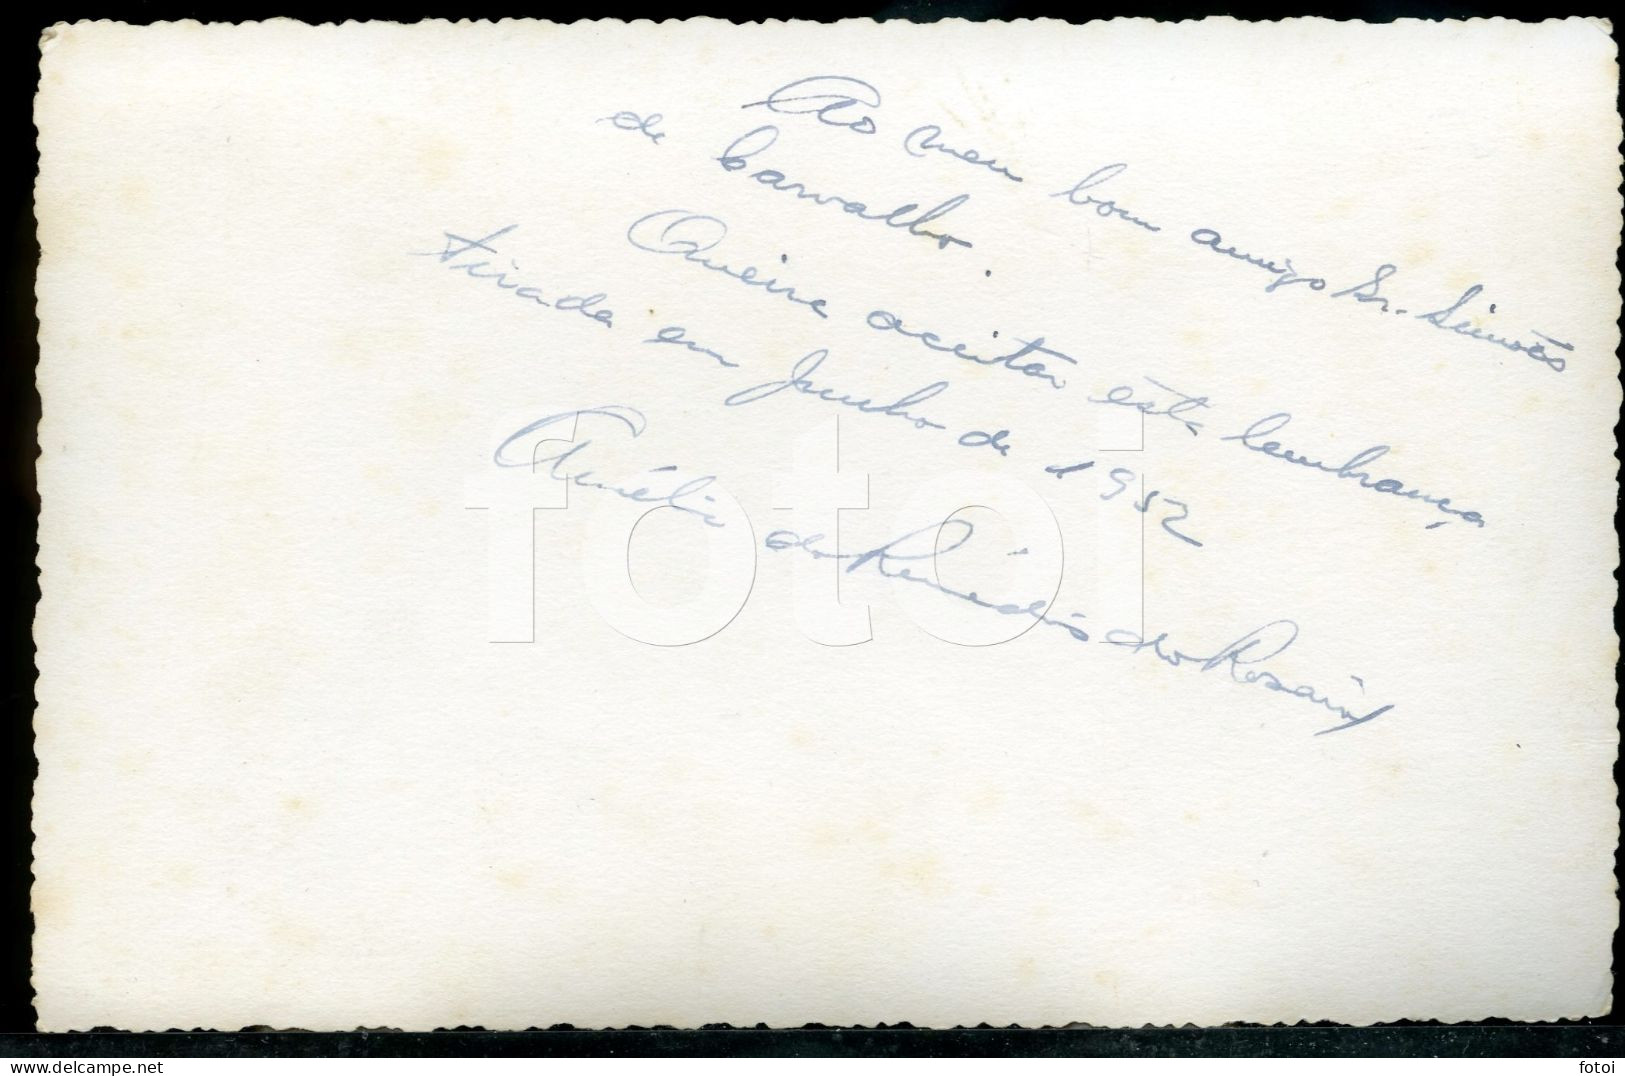 Ao meu bom amigo Sr. Simões
de Carvalho.
Queira aceitar esta lembrança
tirada em Junho de 1952
Amélia do Remédios do Rosário
fotoi
fotoi